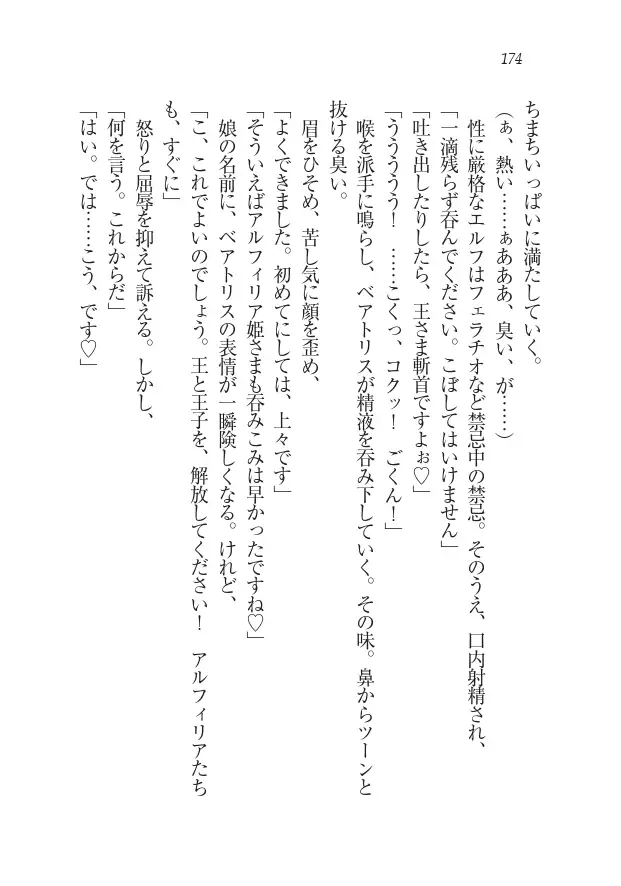 174
ちまちいっぱいに満たしていく。
（ぁ、熱い……ぁあああ、臭い、が……）
　性に厳格なエルフはフェラチオなど禁忌中の禁忌。そのうえ、口内射精され、
「一滴残らず呑んでください。こぼしてはいけません」
「吐き出したりしたら、王さま斬首ですよぉ♡」
「ううううう！　……こくっ、コクッ！　ごくん！」
　喉を派手に鳴らし、ベアトリスが精液を呑み下していく。その味。鼻からツーンと
抜ける臭い。
　眉をひそめ、苦し気に顔を歪め、
「よくできました。初めてにしては、上々です」
「そういえばアルフィリア姫さまも呑みこみは早かったですね♡」
　娘の名前に、ベアトリスの表情が一瞬険しくなる。けれど、
「こ、これでよいのでしょう。王と王子を、解放してください！　アルフィリアたち
も、すぐに」
　怒りと屈辱を抑えて訴える。しかし、
「何を言う。これからだ」
「はい。では……こう、です♡」